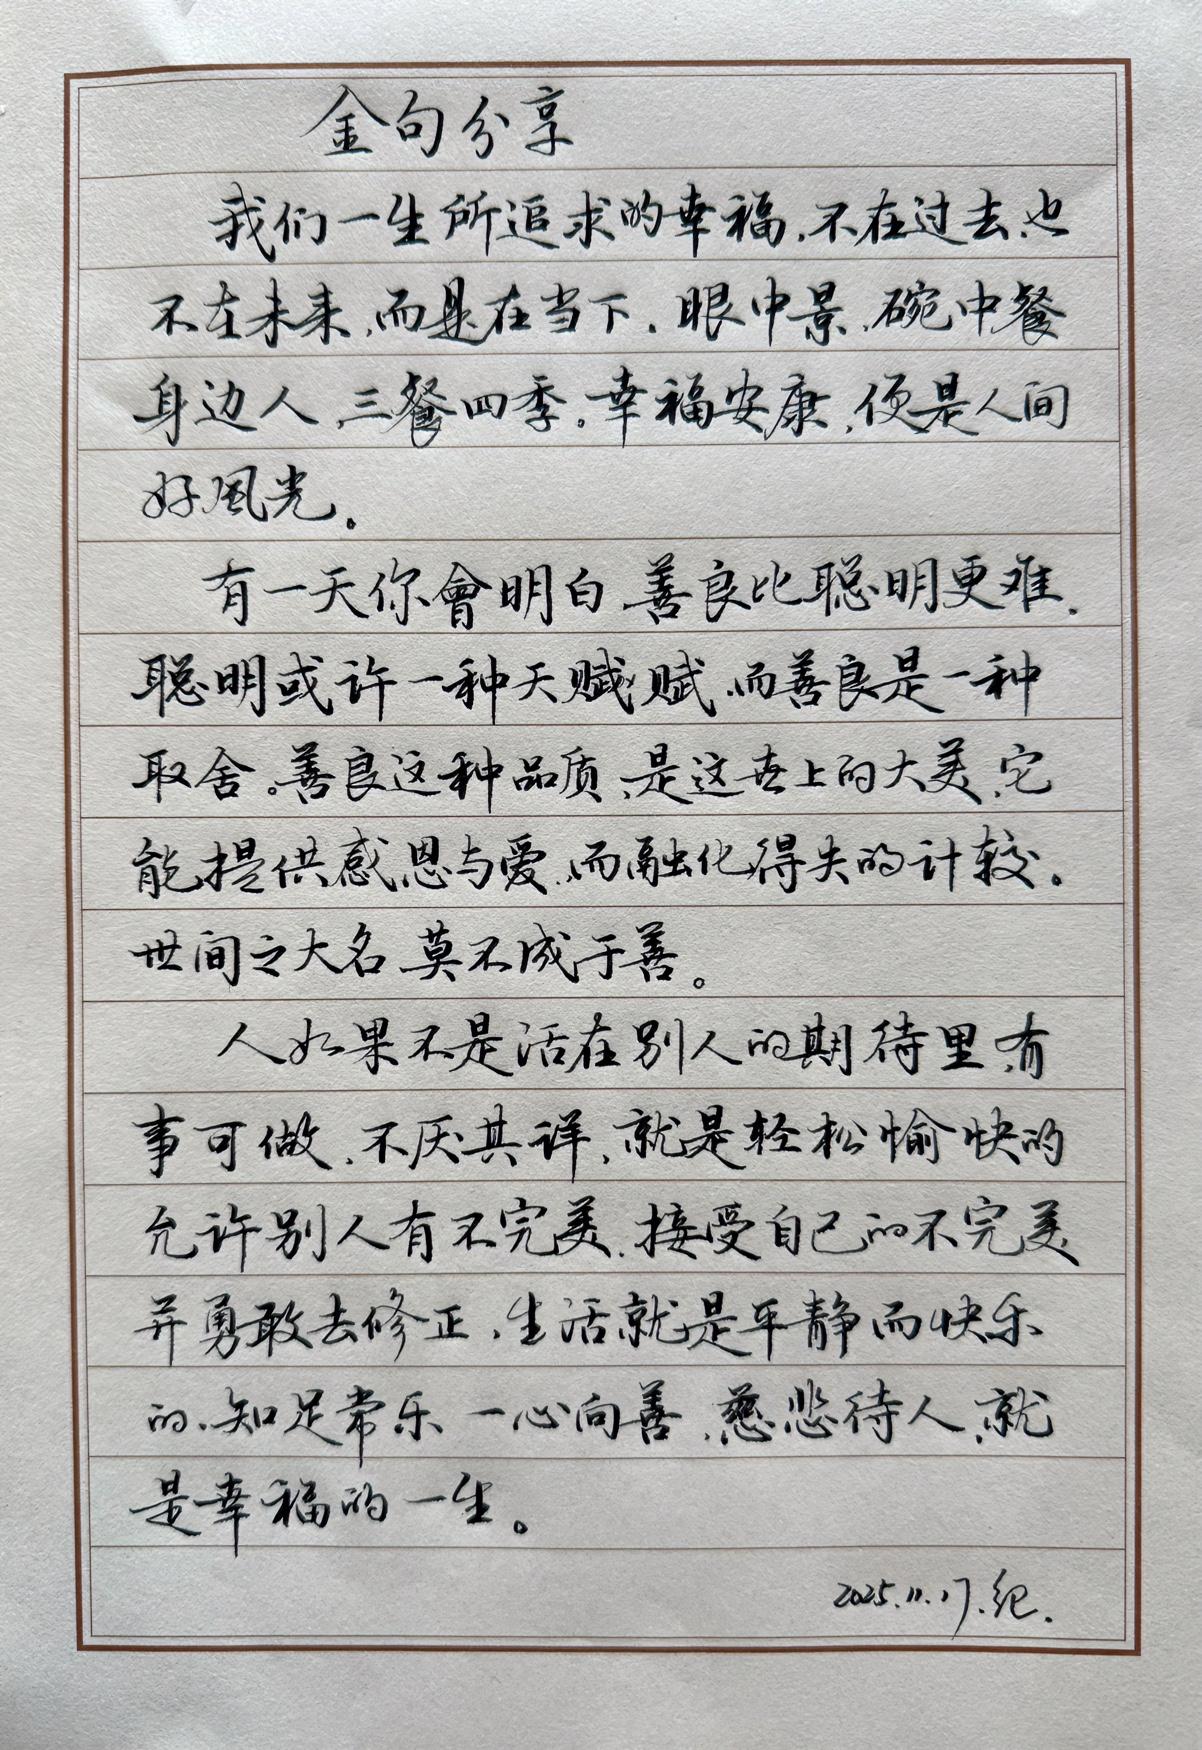 金句分享
我们一生所追求的幸福，不在过去，也
不在未来，而是在当下，眼中景，碗中餐
身边人，三餐四季。幸福安康，便是人间
好风光。
有一天你會明白，善良比聪明更难，
聪明或许一种天赋赋，而善良是一种
取舍。善良这种品质，是这世上的大美，它
能提供感恩与爱，而融化得失的计较。
世间之大名，莫不成于善。
人如果不是活在别人的期待里，有
事可做，不厌其详，就是轻松愉快的
允许别人有不完美，接受自己的不完美
并勇敢去修正，生活就是平静而快乐
的，知足常乐，一心向善，慈悲待人，就
是幸福的一生。
2025.11.17.纪.